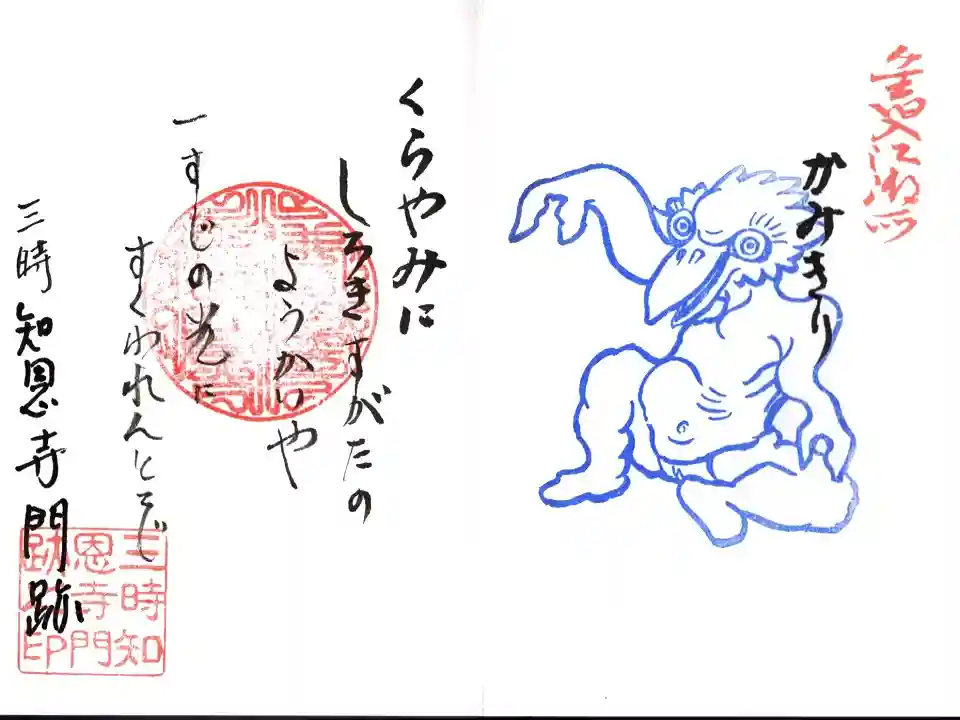 かみきり
くらやみに
しろきすがたの
ようかいや
一すじの光に
すくわれんとす
三時知恩寺門跡
三時知
恩寺門
跡之印